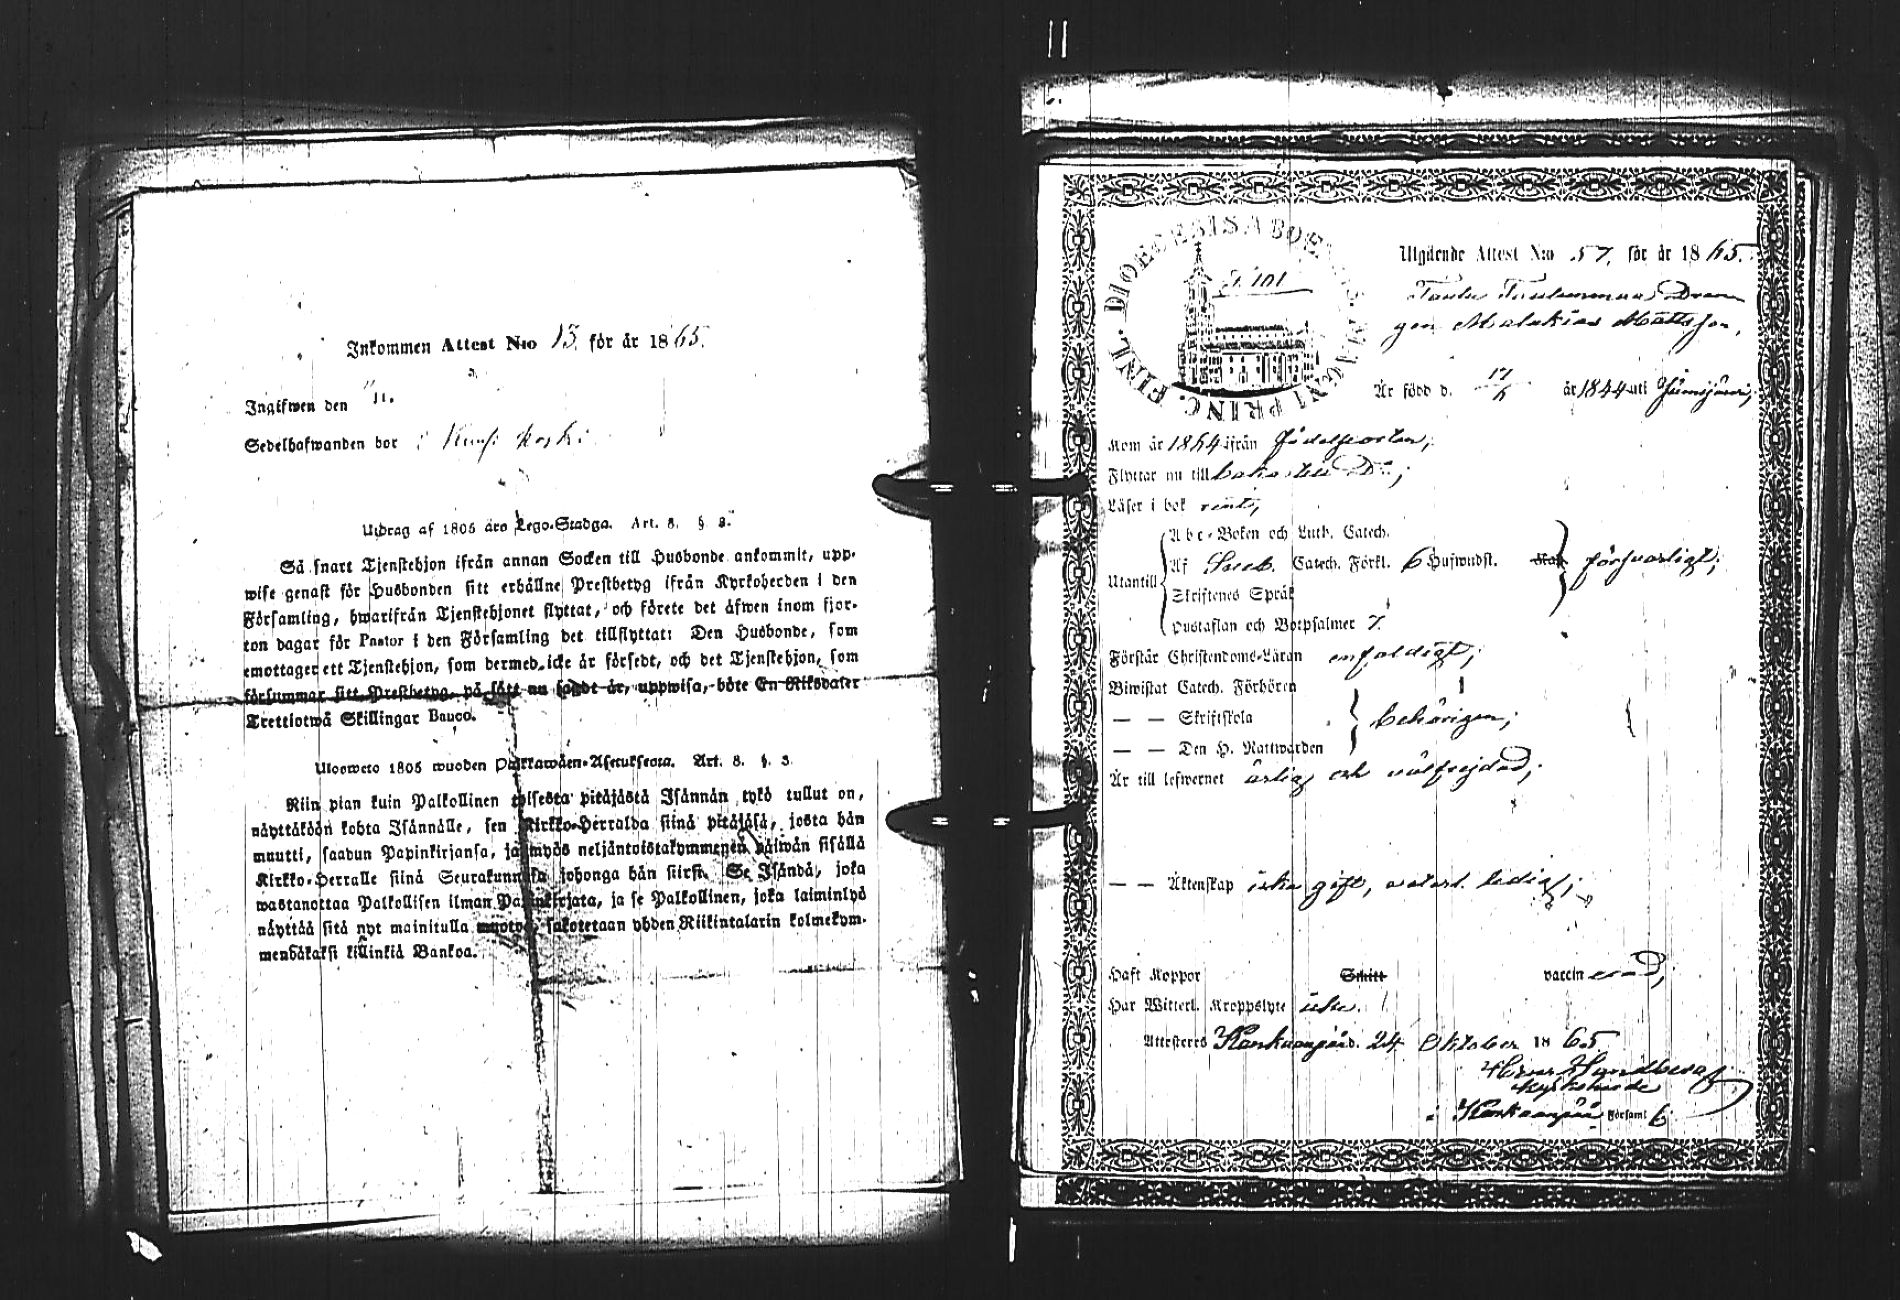 Inkommen Attest N:o 13. för år 1865.
Ingifwen den 11.
Sedelhafwanden bor i
Utdrag af 1805 års Lego-Stadga. Art. 8. §. 3.
Så snart Tjenstehjon ifrån annan Socken till Husbonde ankommit, upp-
wise genast för Husbonden sitt erhållne Prestbetyg ifrån Kyrkoherden i den
Församling, hwarifrån Tjenstehjonet flyttat, och förete det äfwen inom fjor-
ton dagar för Pastor i den Församling det tillflyttat: Den Husbonde, som
emottager ett Tjenstehjon, som dermed icke är försedt, och det Tjenstehjon, som
försummar sitt Prestbetyg, på sätt nu sagdt är, uppwisa, böte En Riksdaler
Trettiotwå Skillingar Banco.
Ulosweto 1805 wuoden Palkkawäen-Asetuksesta. Art. 8. §. 3.
Niin pian kuin Palkollinen toisesta pitäjästä Isännän tykö tullut on,
näyttäköön kohta Isännälle, sen Kirkko-Herralda siinä pitäjäsä, josta hän
muutti, saadun Papinkirjansa, ja myös neljäntoistakymmenen päiwän sisällä
Kirkko-Herralle siinä Seurakunnasa johonga hän siirsi. Se Isändä, joka
wastanottaa Palkollisen ilman Papinkirjata, ja se Palkollinen, joka laiminlyö
näyttää sitä nyt mainitulla muotoa, sakotetaan yhden Riikintalarin kolmekym-
mendäkaksi killinkiä Bankoa.
DIOECESIS ABOENSIS MAGNI PRINC. FINL.
F. 101
Utgående Attest N:o 57. för år 1865.
Drän
gen Malakias Mattsson,
Är född d. 17 år 1844 uti Jämijärvi;
Kom år 1864 ifrån födelseorten;
Flyttar nu till tillbaka
Läser i bok rent,
Utantill
Abc-Boken och Luth. Catech.
Af Sveb. Catech. Förkl. 6 Hufwudst. försvarligt;
Skriftenes Språk
Hustaflan och Botpsalmer 7.
Förstår Christendoms-Läran enfaldigt;
Biwistat Catech. Förhören
— — Skriftskola behörigen;
— — Den H. Nattwarden
Är till lefwernet ärlig och välfrejdad;
— — Äktenskap icke gift, ledig;
Haft Koppor Skitt vaccinerad,
Har Witterl. Kroppslyte icke.
Attesteres Kankaanpää d. 24 Oktober 1865
Kyrkoherde
i Kankaanpää Församl.